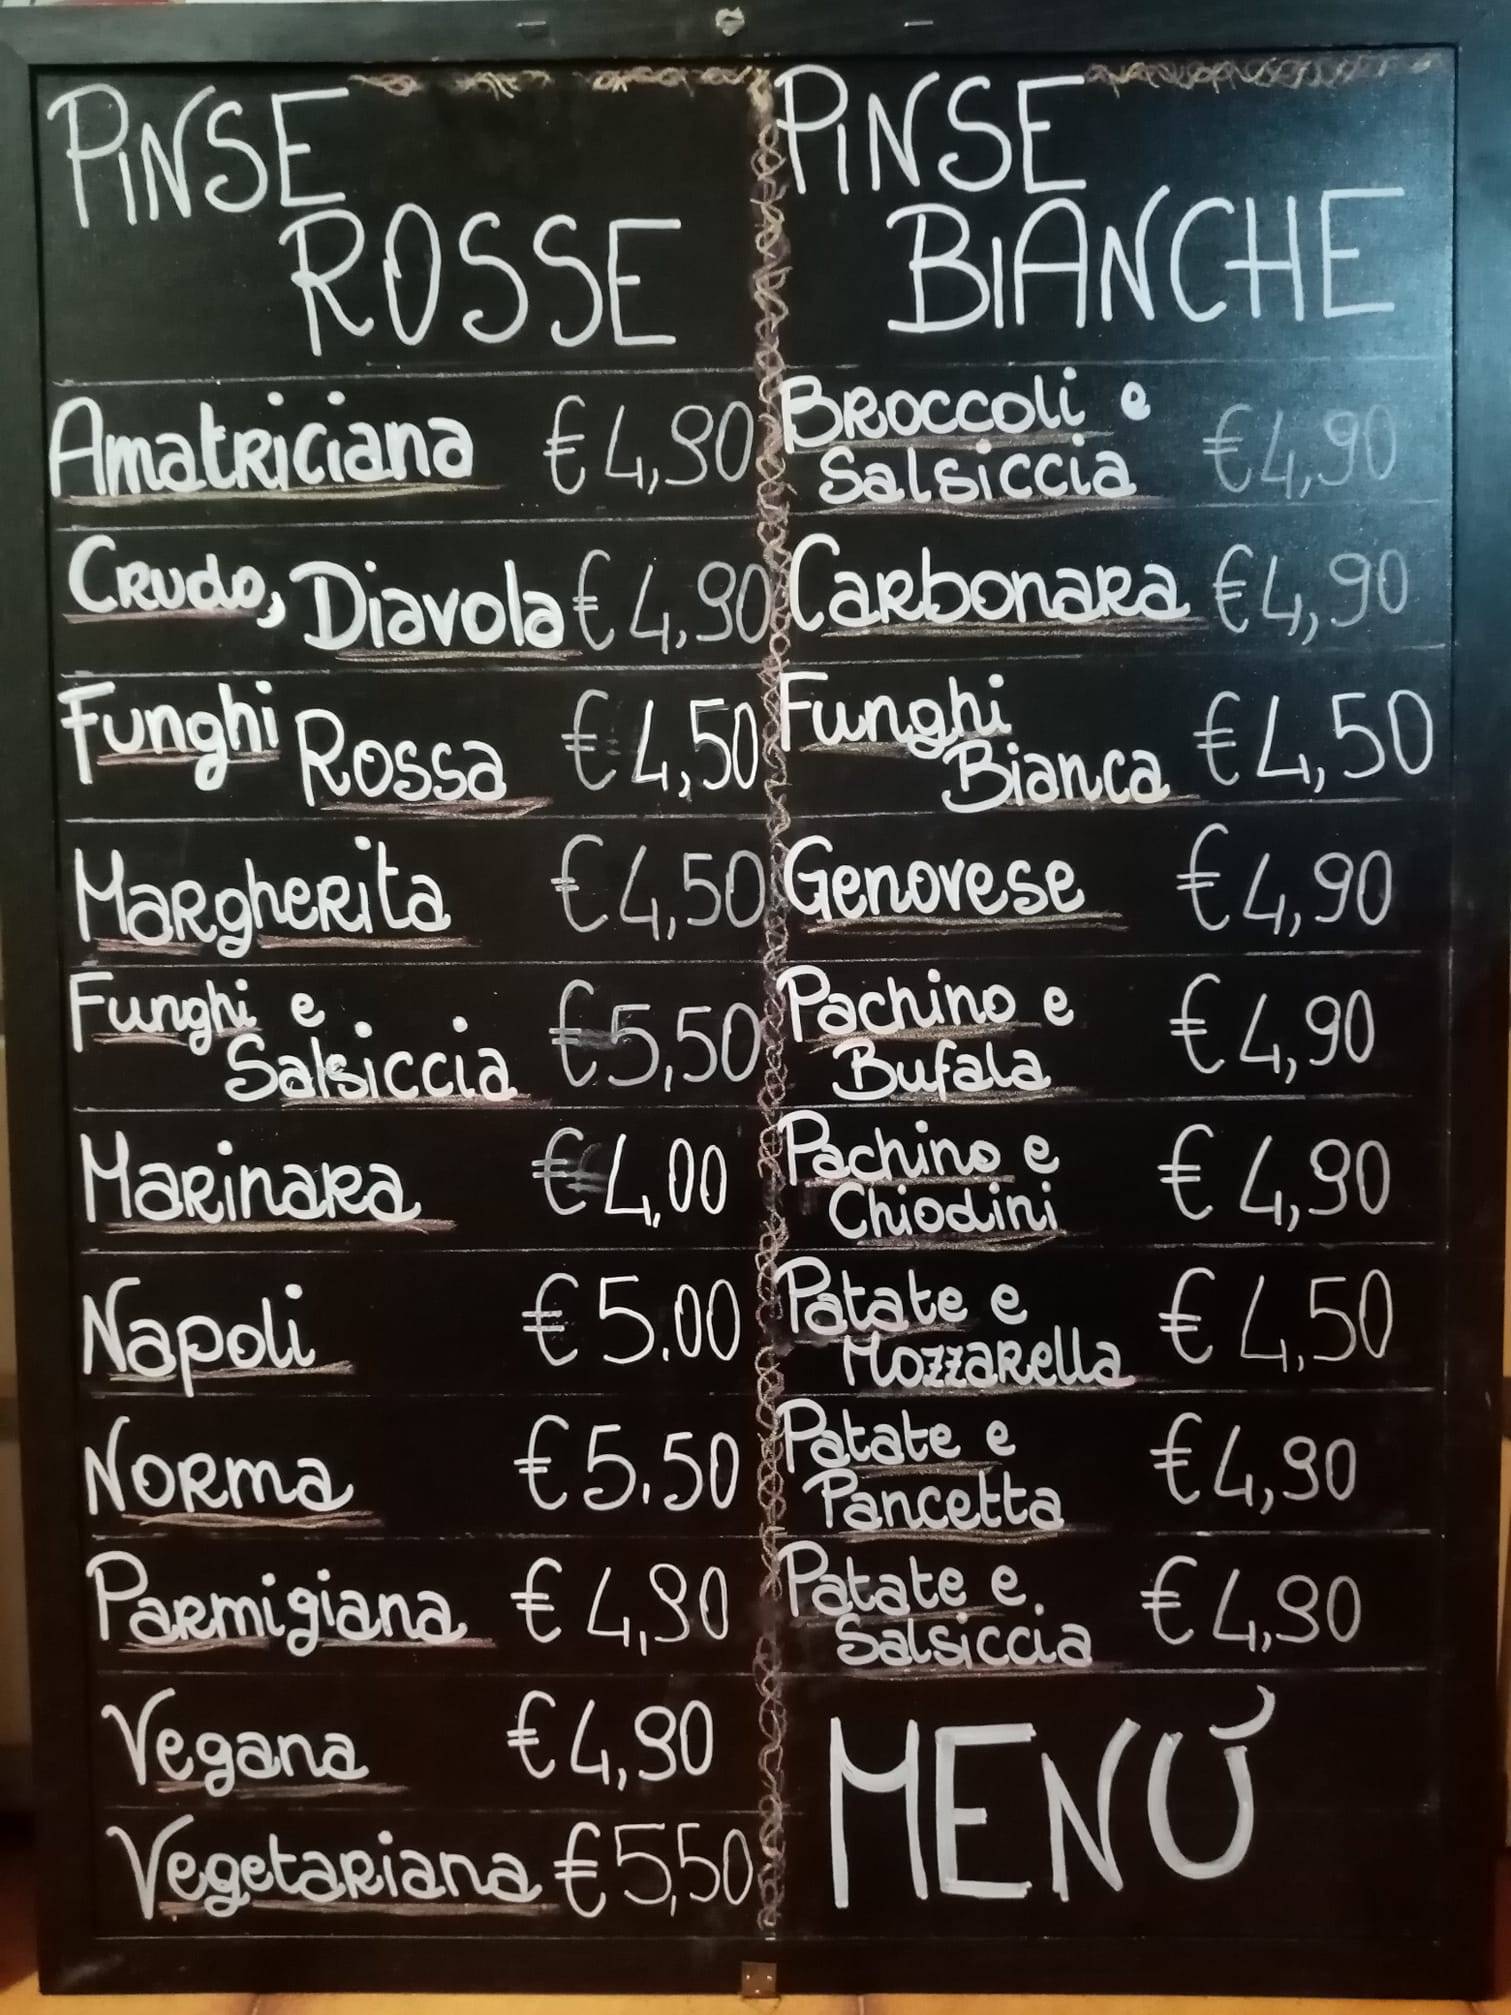 PINSE
ROSSE
Amatriciana €4,90
Crudo, Diavola €4,90
Funghi Rossa €4,50
Margherita €4,50
Funghi e
Salsiccia €5,50
Marinara €4,00
Napoli €5.00
Norma €5.50
Parmigiana €4,90
Vegana €4,90
Vegetariana €5,50
PINSE
BIANCHE
Broccoli e
Salsiccia €4,90
Carbonara €4,90
Funghi
Bianca €4,50
Genovese €4,90
Pachino e
Bufala €4,90
Pachino e
Chiodini €4,90
Patate e
Mozzarella €4,50
Patate e
Pancetta €4,90
Patate e
Salsiccia €4,90
MENÚ